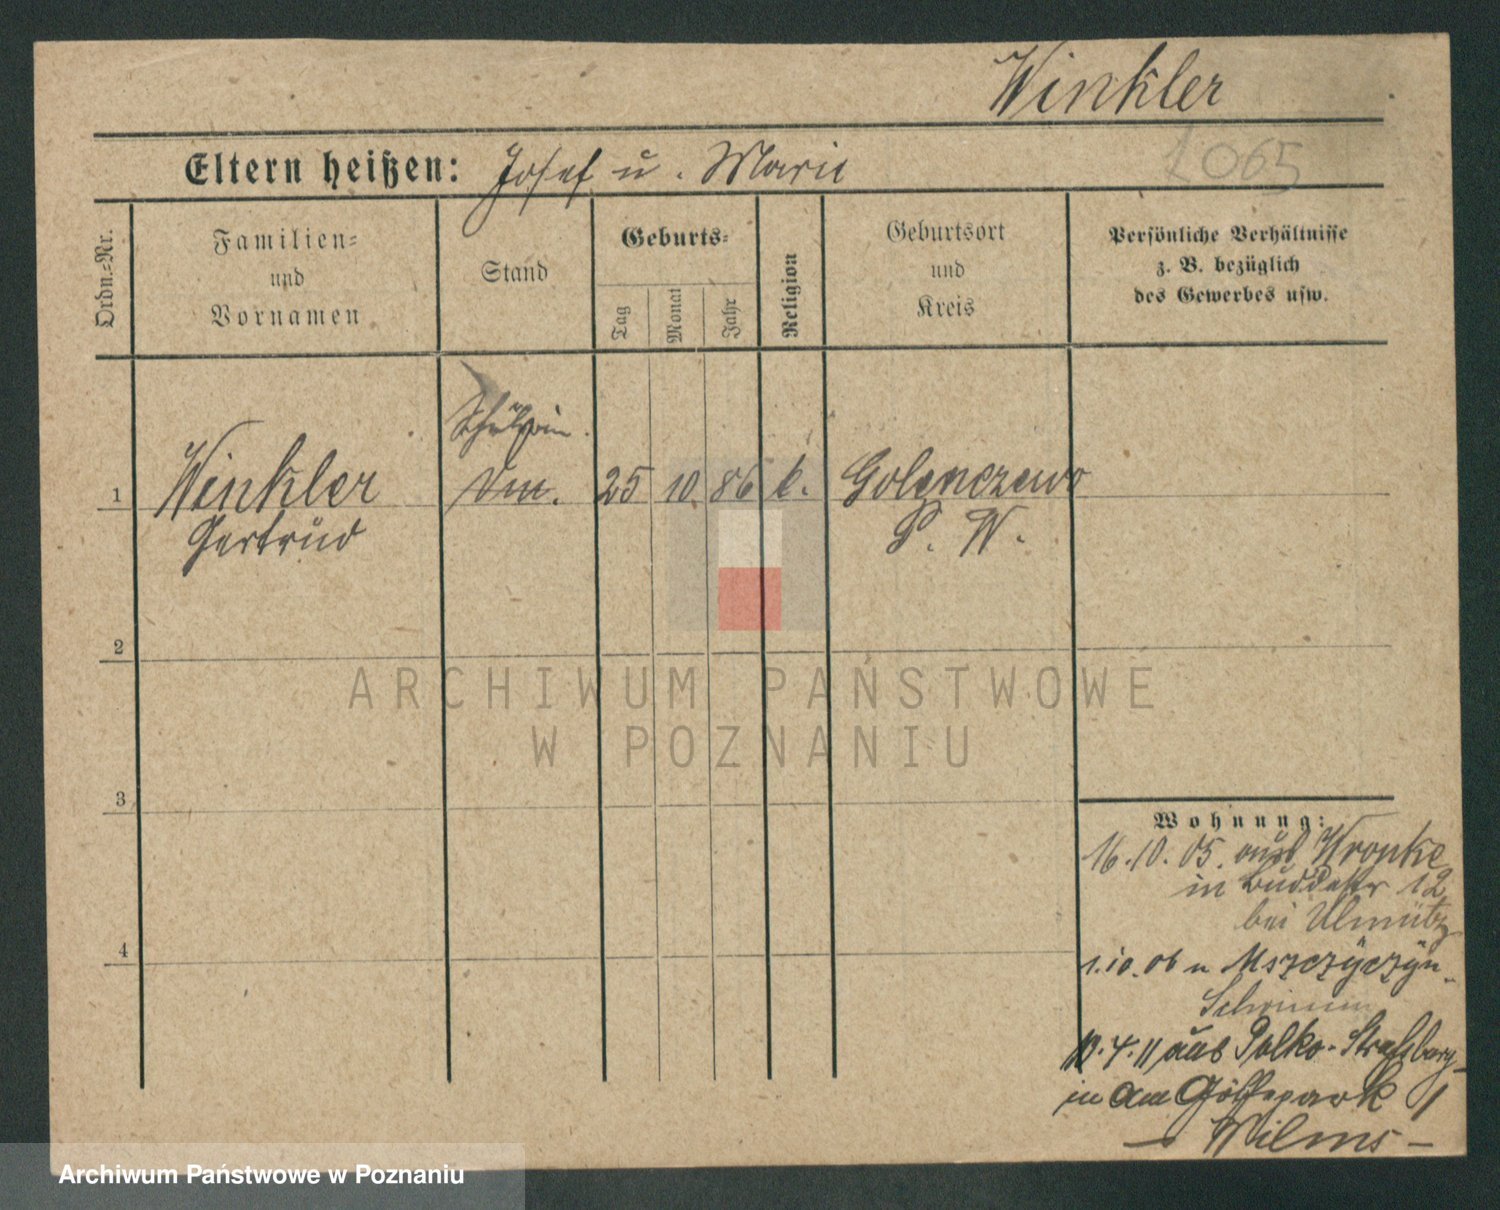 Winkler
1065
Eltern heißen: Josef u. Marie
Ordn.-Nr.
Familien-
und
Vornamen
Stand
Geburts-
Tag
Monat
Jahr
Religion
Geburtsort
und
Kreis
Persönliche Verhältnisse
z. B. bezüglich
des Gewerbes usw.
Schülerin
1 Winkler 25 10. 86 k. Golenczewo
Gertrud P. W.
2
ARCHIWUM PAŃSTWOWE
W POZNANIU
3
Wohnung:
16.10.05. aus Wronke
in Buddestr 12
bei Ulmütz
4
1.10.06 n Mszczyczyn
Schrimm
aus Polko-Strasburg
in Am 1
– Wilms –
Archiwum Państwowe w Poznaniu